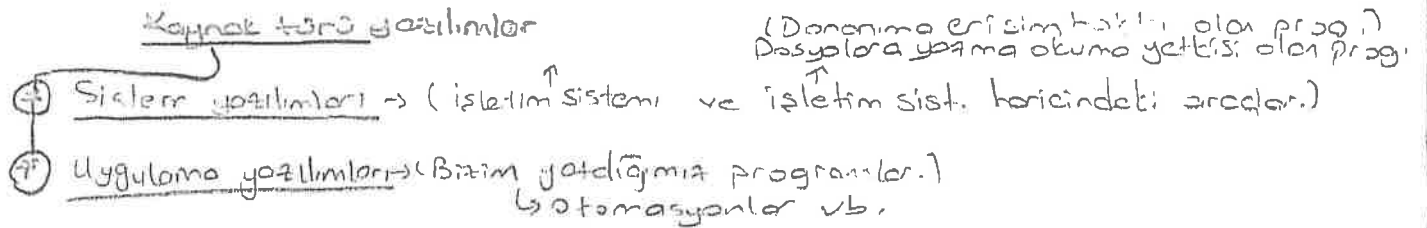 Kaynak türü yazılımlar
(Donanıma erişim hakkı olan prog.)
Dosyalara yazma okuma yetkisi olan prog.
Sistem yazılımları → (işletim sistemi ve işletim sist. haricindeki araçlar.)
Uygulama yazılımları → (Bizim yazdığımız programlar.)
↳ otomasyonlar vb.